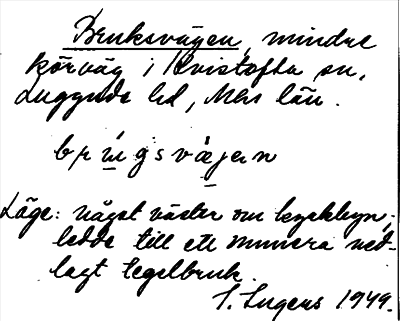 Bruksvägen, mindre
körväg i Kvistofta sn,
Luggude hd, Mhs län.
brúgsvæjęn
Läge: något väster om kyrkbyn,
ledde till ett numera ned-
lagt tegelbruk.
S. Ingers 1949.